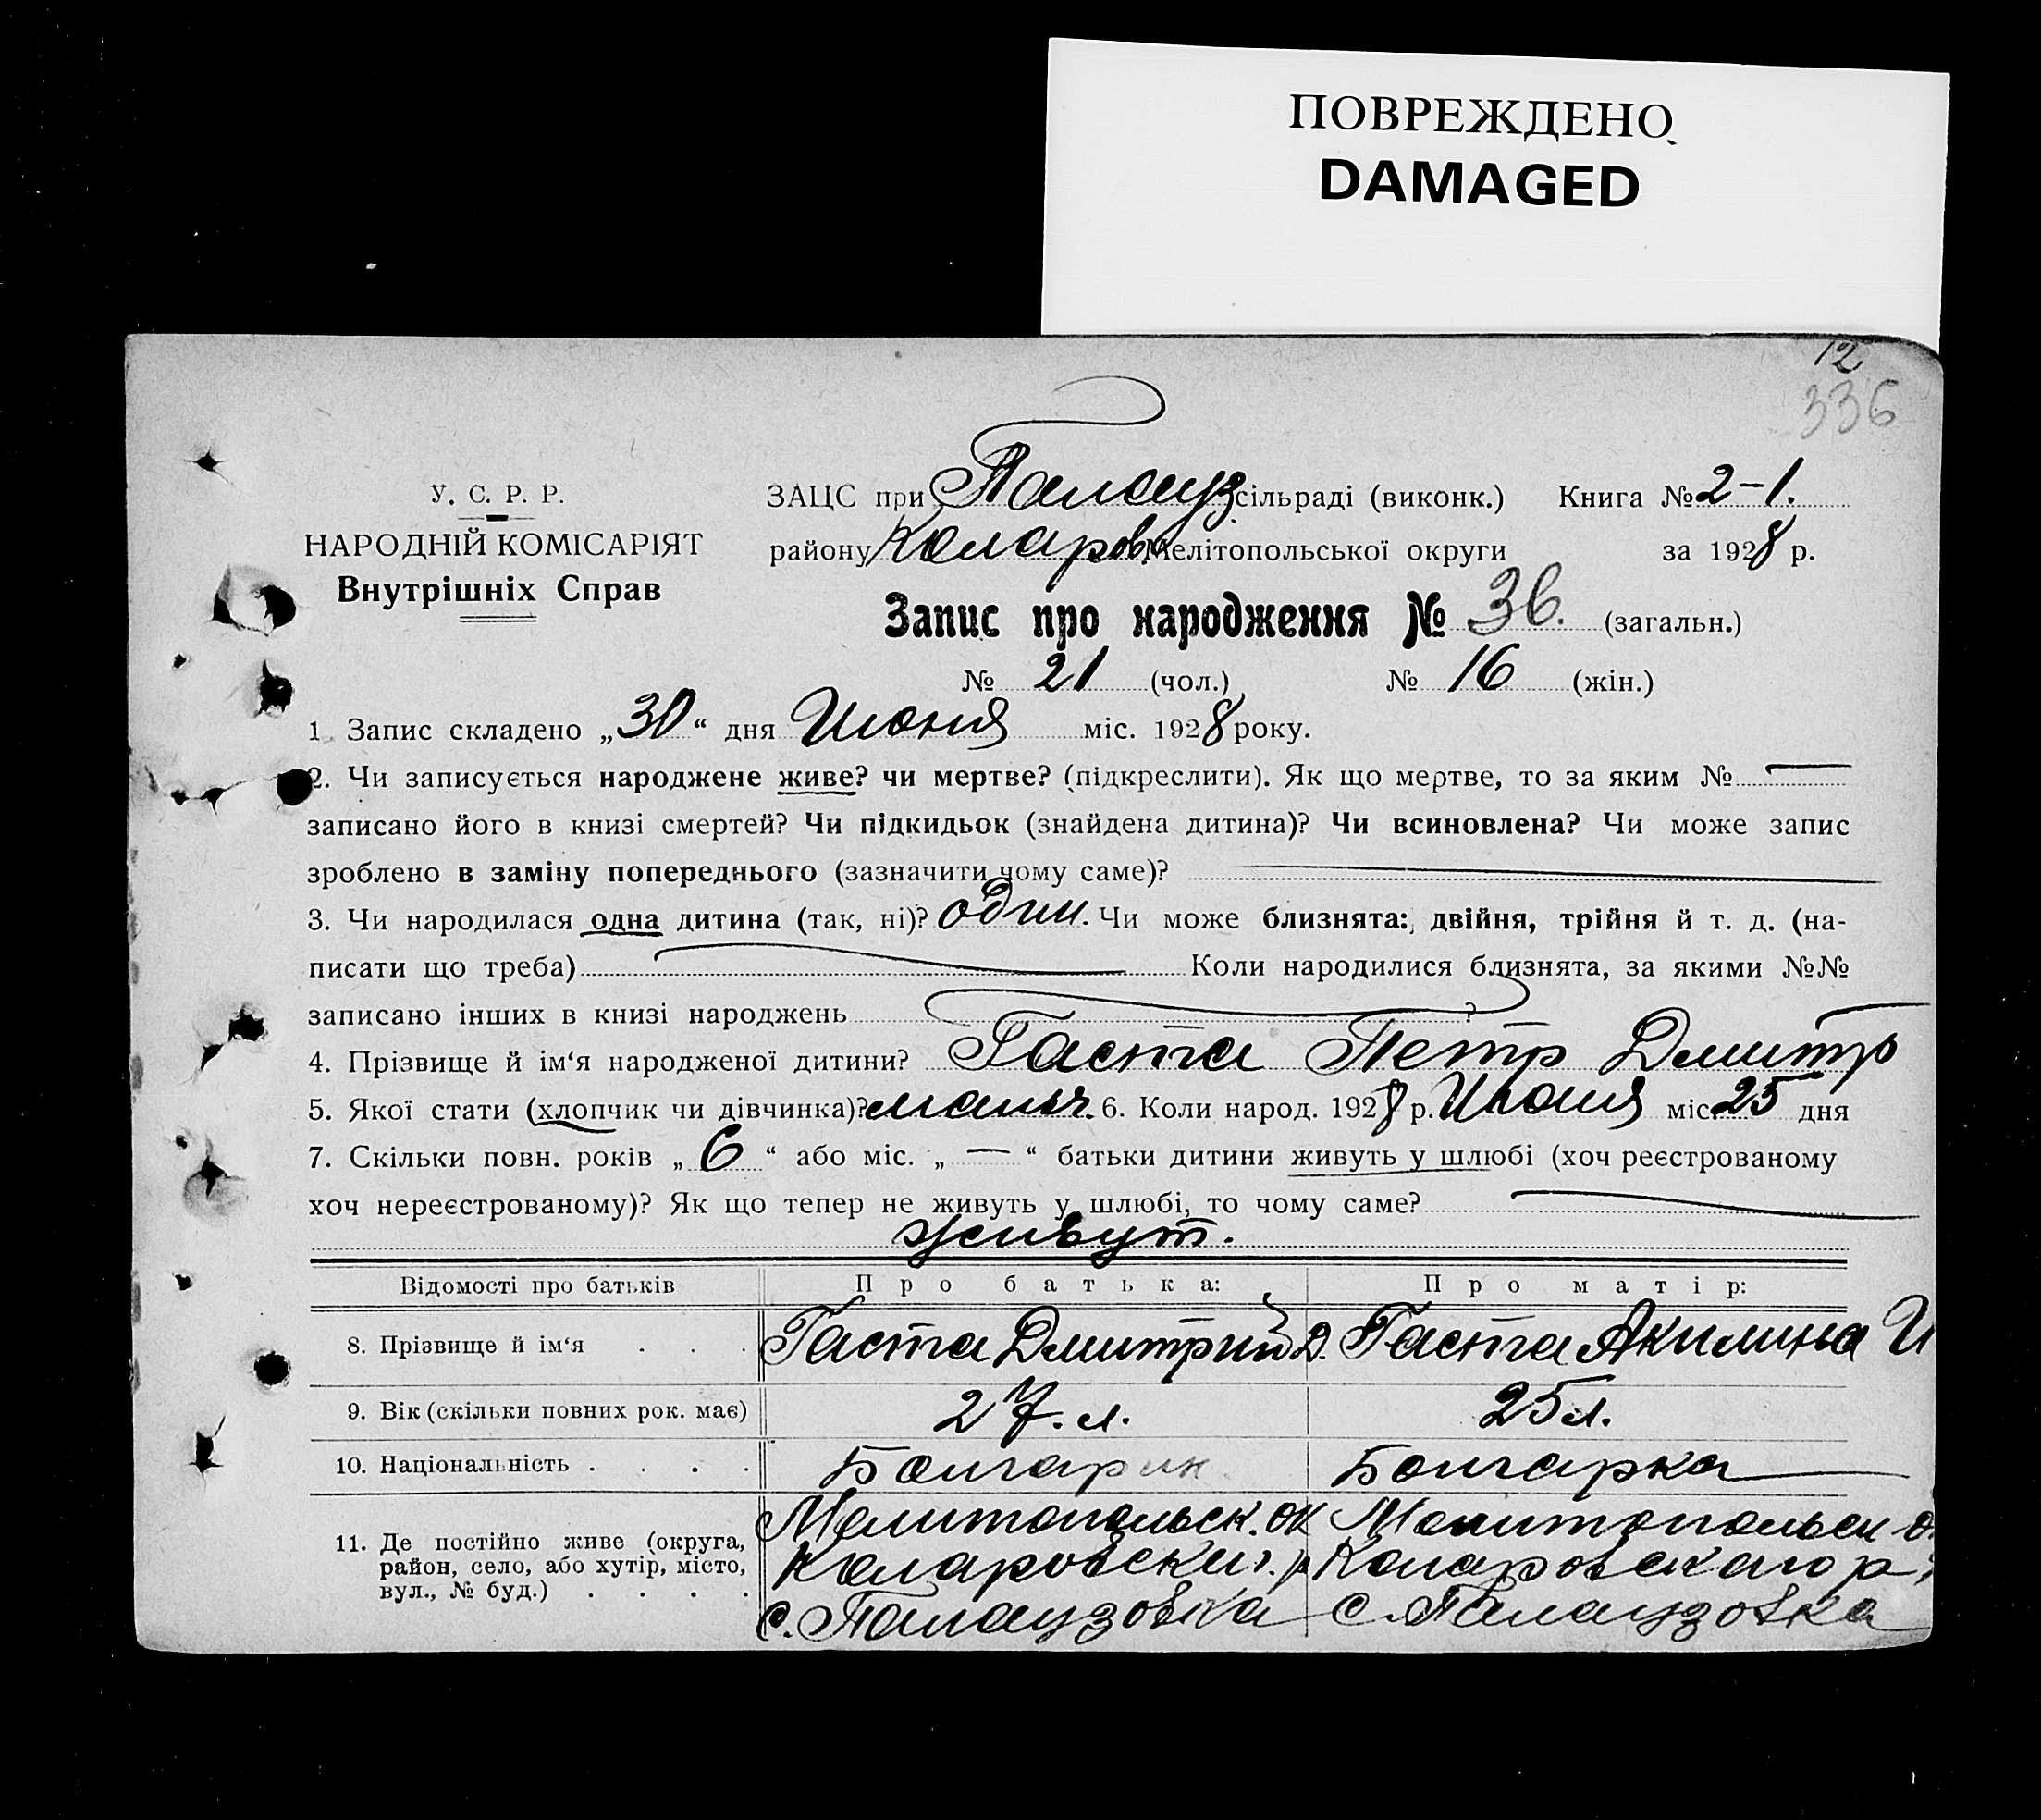 ПОВРЕЖДЕНО
DAMAGED
12
336
У. С. Р. Р.
НАРОДНІЙ КОМІСАРІЯТ
Внутрішніх Справ
ЗАЦС при Палауз. сільраді (виконк.) Книга № 2-1.
району Коларов. Мелітопольської округи за 1928 р.
Запис про народження № 36. (загальн.)
№ 21 (чол.) № 16 (жін.)
1. Запис складено „30“ дня Июня міс. 1928 року.
2. Чи записується народжене живе? чи мертве? (підкреслити). Як що мертве, то за яким № —
записано його в книзі смертей? Чи підкидьок (знайдена дитина)? Чи всиновлена? Чи може запис
зроблено в заміну попереднього (зазначити чому саме)?
3. Чи народилася одна дитина (так, ні)? один. Чи може близнята: двійня, трійня й т. д. (на-
писати що треба) Коли народилися близнята, за якими №№
записано інших в книзі народжень ?
4. Прізвище й ім‘я народженої дитини? Гаста Петр Дмитр
5. Якої стати (хлопчик чи дівчинка)? мальч. 6. Коли народ. 1928 р. Июня міс. 25 дня
7. Скільки повн. років „6“ або міс. „—“ батьки дитини живуть у шлюбі (хоч реєстрованому
хоч нереєстрованому)? Як що тепер не живуть у шлюбі, то чому саме?
живут.
Відомості про батьків Про батька: Про матір:
8. Прізвище й ім‘я . . . Гаста Дмитрий Д. Гаста Акилина И
9. Вік (скільки повних рок. має) 27. л. 25 л.
10. Національність . . . . Болгарин Болгарка
11. Де постійно живе (округа, район, село, або хутір, місто, вул., № буд.) . . . .
Мелитопольск. ок Мелитопольск о
Коларовског. р Коларовскаго р.
с. Палаузовка с. Палаузовка